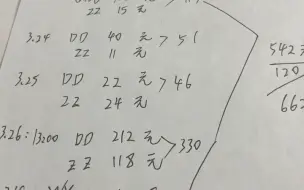 ZZ 15 元
3.24 DD 40 元 > 51
ZZ 11 元
3.25 DD 22 元 > 46
ZZ 24 元
3.26: 13200 DD 212 元 > 330
ZZ 118 元
542
120
662